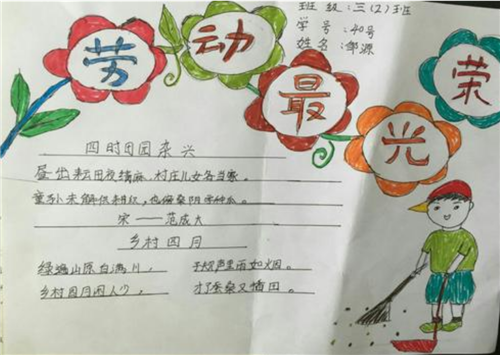 班级:三(2)班
学号:40号
姓名:邹源
劳动最光荣
四时田园杂兴
昼出耘田夜绩麻,村庄儿女各当家。
童孙未解供耕织,也傍桑阴学种瓜。
宋——范成大
乡村四月
绿遍山原白满川,子规声里雨如烟。
乡村四月闲人少,才了蚕桑又插田。